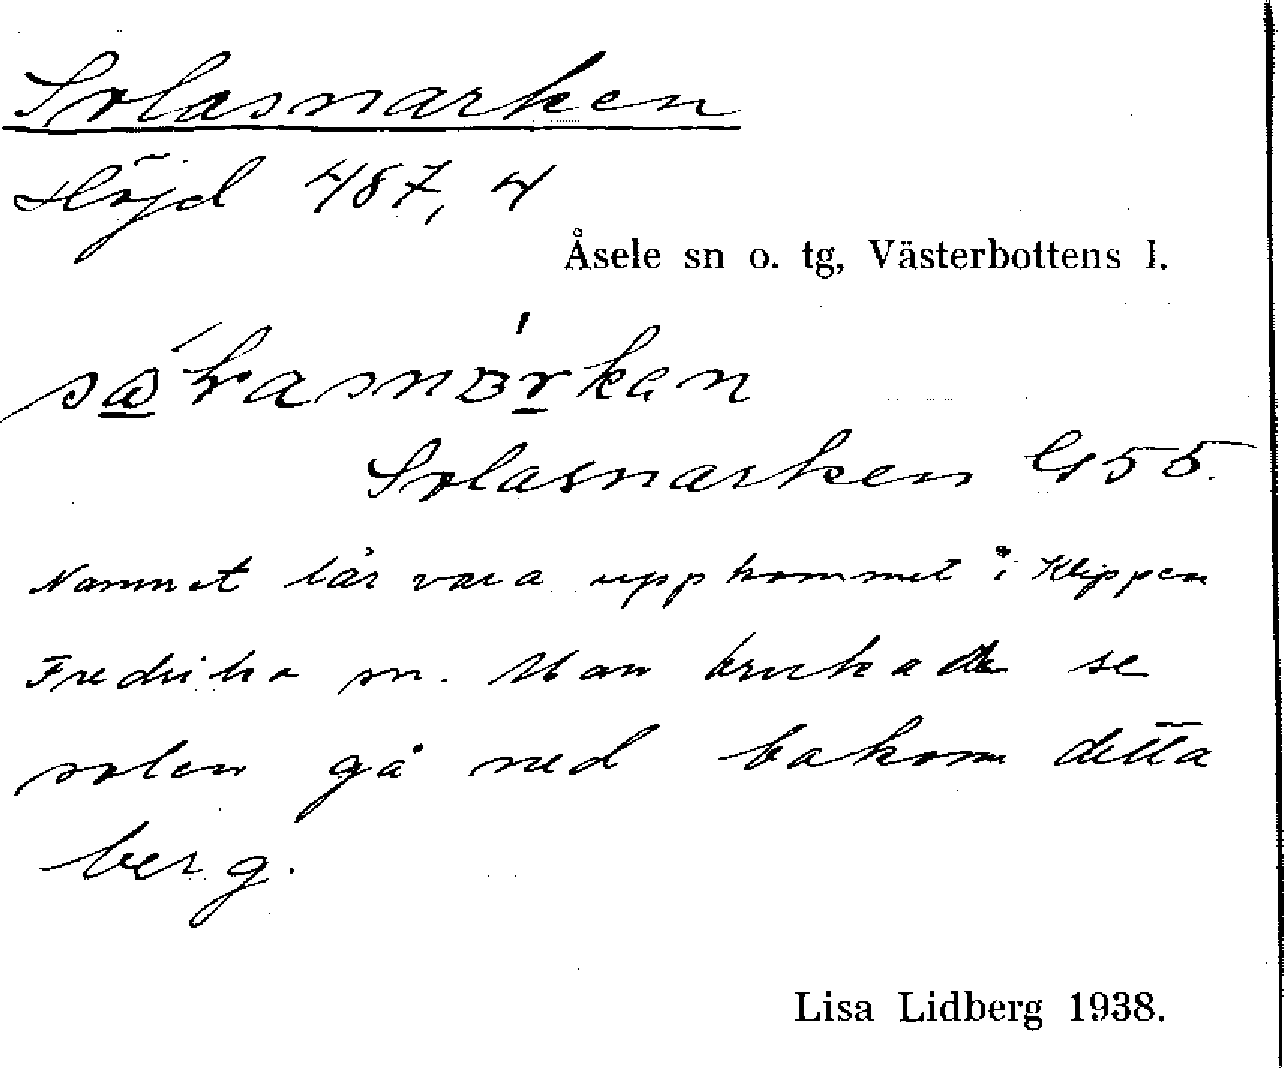 Solasnarken
Höjd 487,4
Åsele sn o. tg, Västerbottens l.
Solasnarken G 55.
Namnet lär vara uppkommet i Klippen
Fredrika sn. Man brukade se
solen gå ned bakom detta
berg.
Lisa Lidberg 1938.